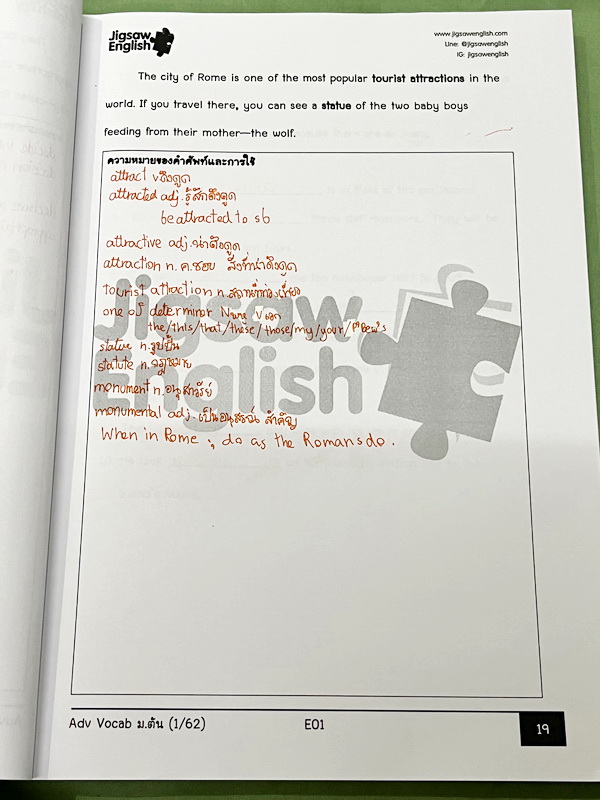 Jigsaw
English
www.jigsawenglish.com
Line: @jigsawenglish
IG: jigsawenglish
The city of Rome is one of the most popular tourist attractions in the
world. If you travel there, you can see a statue of the two baby boys
feeding from their mother—the wolf.
ความหมายของคำศัพท์และการใช้
attract v.ดึงดูด
attracted adj.รู้สึกดึงดูด
be attracted to sb
attractive adj.น่าดึงดูด
attraction n.ค.ชอบ สิ่งที่น่าดึงดูด
tourist attraction n.สถานที่ท่องเที่ยว
one of determiner Nพหู Vเอก
the/this/that/these/those/my/your/
statue n.รูปปั้น
statute n.กฎหมาย
monument n.อนุสาวรีย์
monumental adj.เป็นอนุสรณ์ สำคัญ
When in Rome, do as the Romans do.
Jigsaw
English
Adv Vocab ม.ต้น (1/62)
E01
19